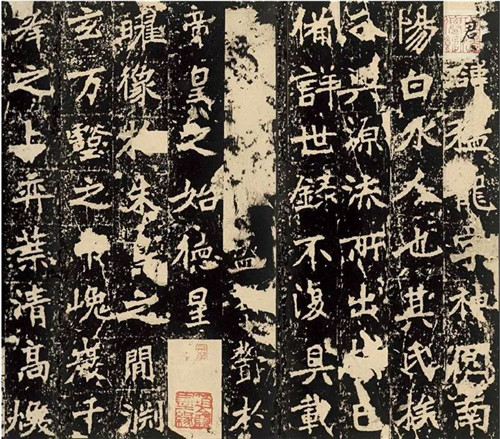 君諱猛龍字神南
陽白水人也其氏族
分興源流所出故已
備詳世錄不復具載
於
帝皇之始德星
曜像於朱鳥之間淵
玄万壑之中千
峯之上弈葉清高煥